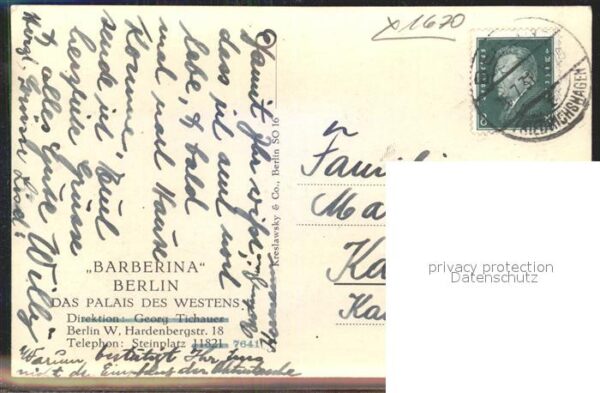 x1670
FRIEDRICHSHAGEN
Damit Ihr seht,
das ich auch noch
lebe, & bald
mal nach Hause
komme,
sende ich Euch
herzliche Grüsse
& alles Gute Willy
Grüsse Lisel!
Kreslawsky & Co., Berlin SO 16
Familie
Ma
Ka
Ka
privacy protection
Datenschutz
„BARBERINA"
BERLIN
DAS PALAIS DES WESTENS
Direktion: Georg Tichauer
Berlin W, Hardenbergstr. 18
Telephon: Steinplatz 11821 7641
Warum bestätigt Ihr
nicht den Empfang der